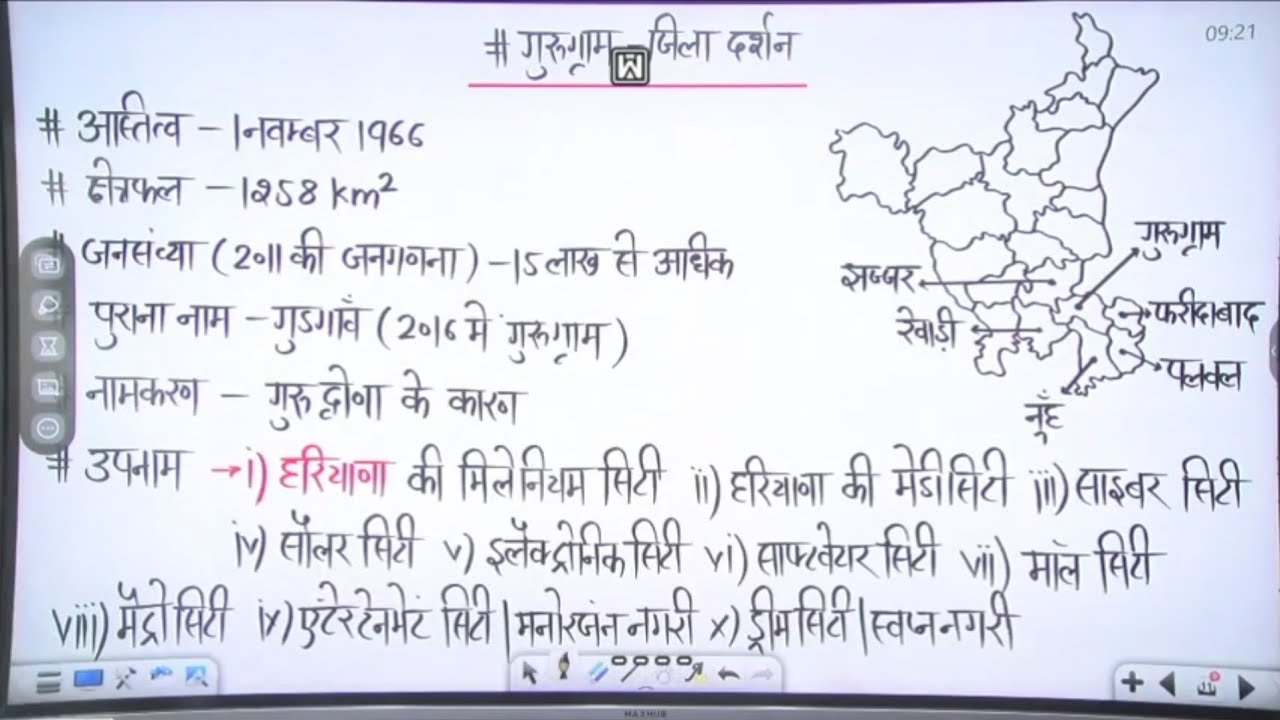 # गुरुग्राम - जिला दर्शन
09:21
# अस्तित्व - 1 नवम्बर 1966
# क्षेत्रफल - 1258 km²
# जनसंख्या (2011 की जनगणना) - 15 लाख से अधिक
पुराना नाम - गुडगाँव (2016 में गुरुग्राम)
नामकरण - गुरु द्रोणा के कारण
# उपनाम → i) हरियाणा की मिलेनियम सिटी ii) हरियाणा की मेडीसिटी iii) साइबर सिटी
iv) सौलर सिटी v) इलैक्ट्रोनिक सिटी vi) साफ्टवेयर सिटी vii) मॉल सिटी
viii) मैट्रो सिटी ix) एंटेरटेनमेंट सिटी | मनोरंजन नगरी x) ड्रीम सिटी | स्वप्न नगरी
गुरुग्राम
झज्जर
फरीदाबाद
रेवाड़ी
पलवल
नूँह
MAXHUB